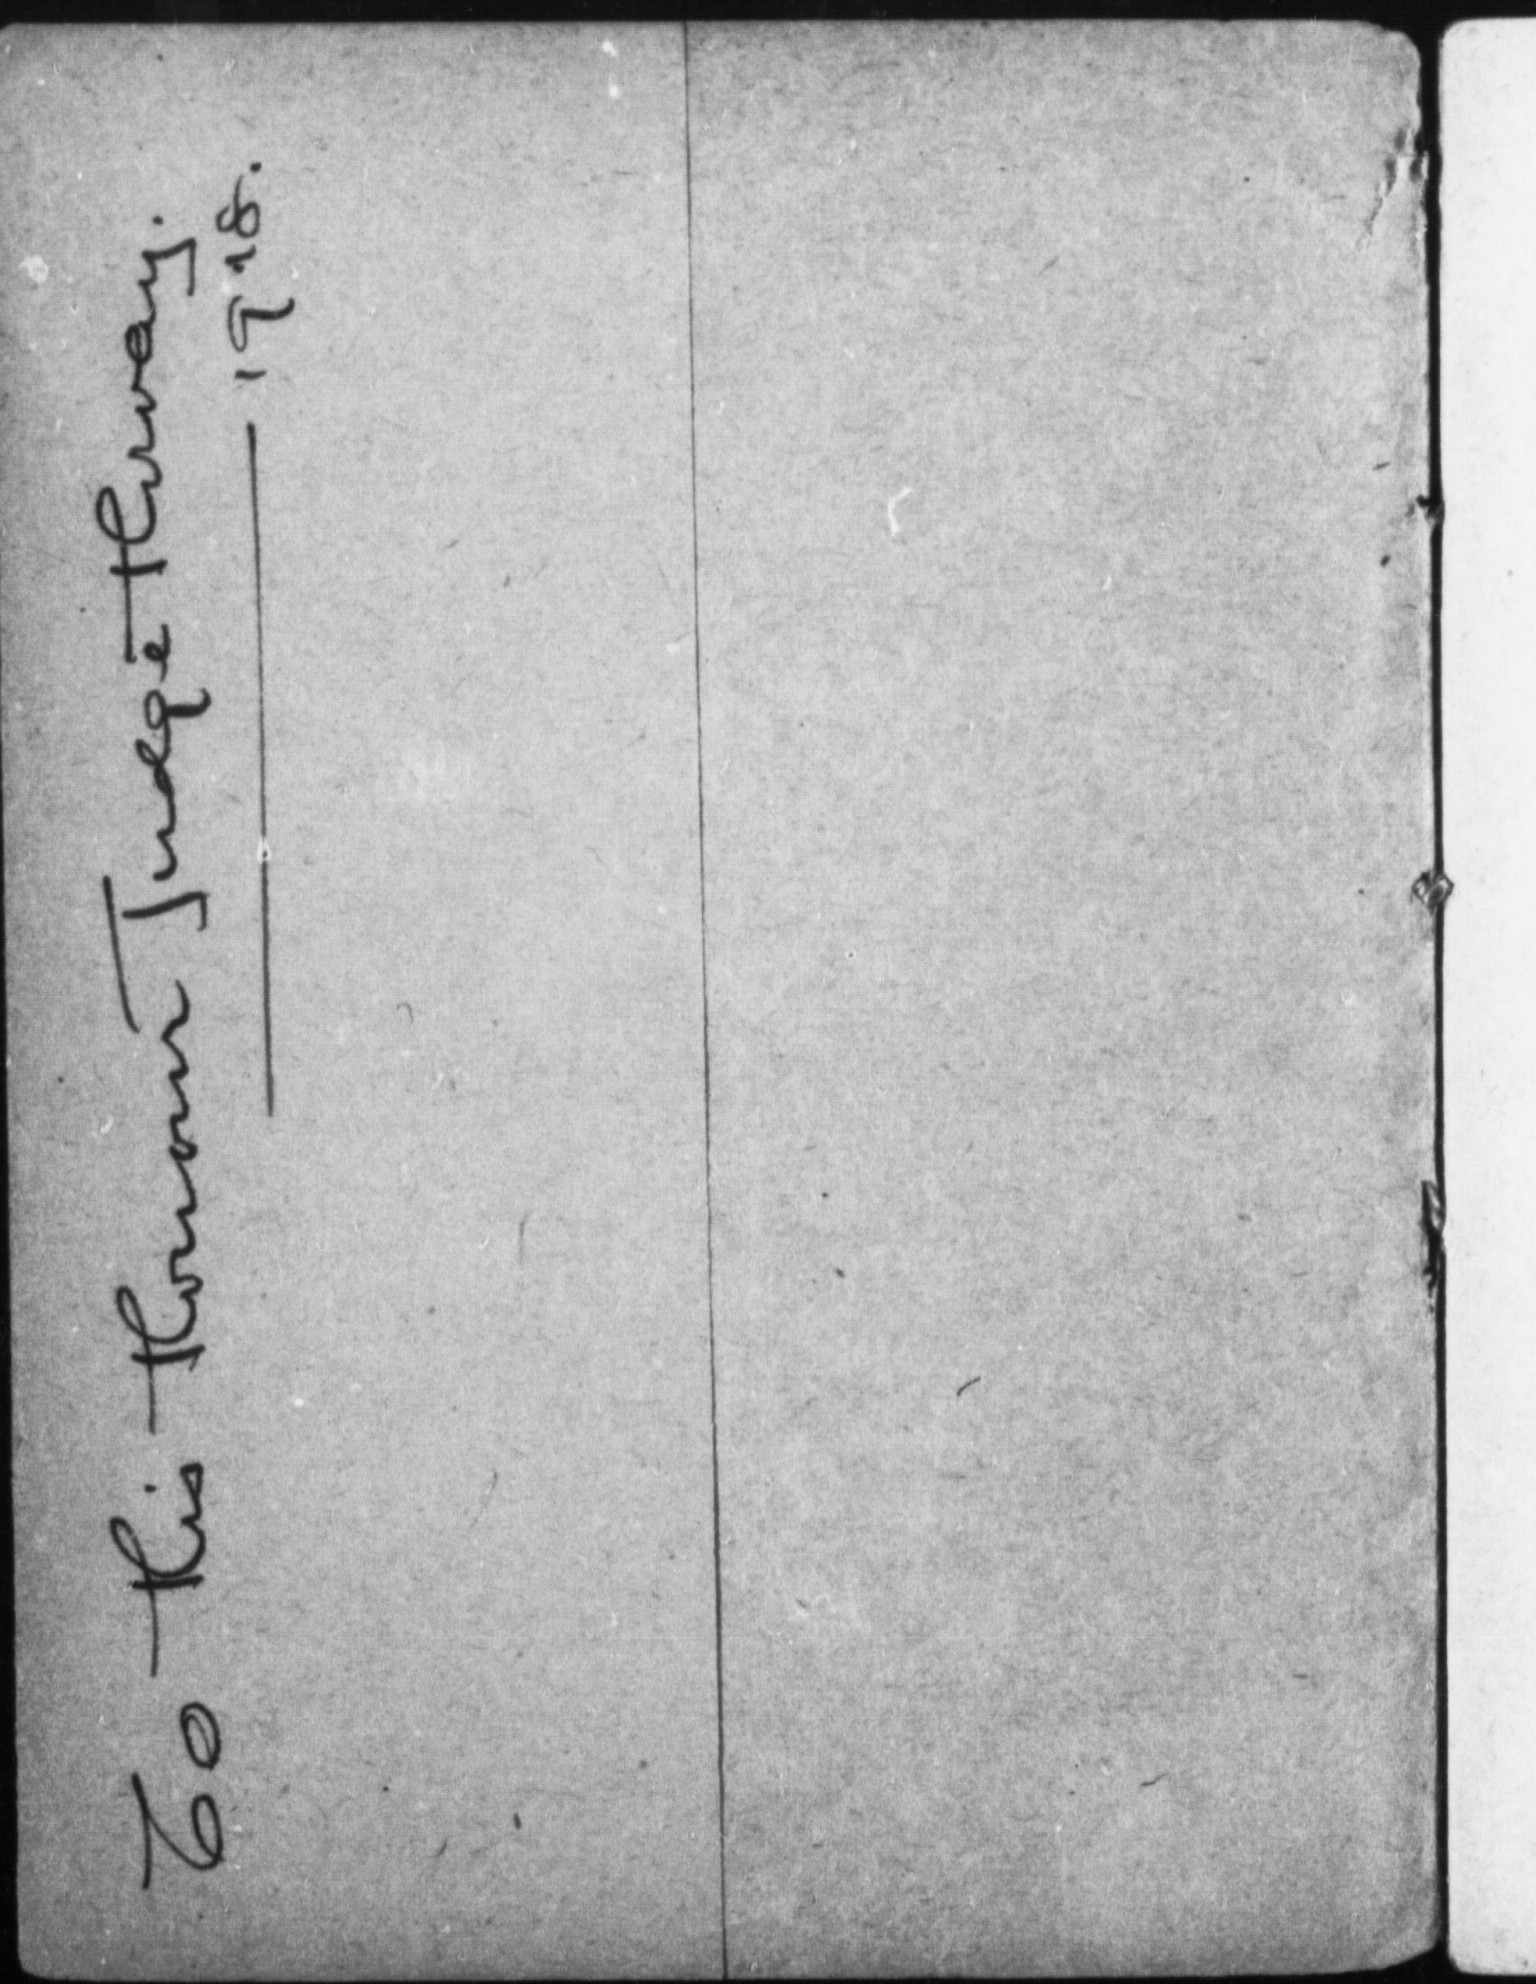 To His Honour Judge Hurway.
1918.